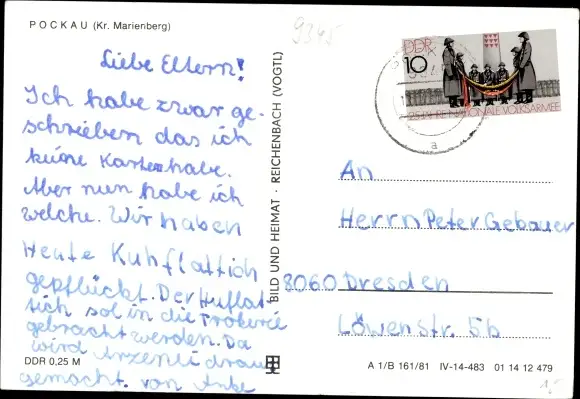 POCKAU (Kr. Marienberg)
Liebe Eltern!
Ich habe zwar ge-
schrieben das ich
keine Karten habe.
Aber nun habe ich
welche. Wir haben
Heute Kuhflattich
gepflückt. Der Huflat-
tich sol in die
gebracht werden. Da
wird Arzenti drauß
gemacht. von
DDR 0,25 M
BILD UND HEIMAT · REICHENBACH (VOGTL)
9345
DDR
10
25 JAHRE NATIONALE VOLKSARMEE
a
An
Herrn Peter Gebauer
8060 Dresden
Löwenstr. 5b
A 1/B 161/81 IV-14-483 01 14 12 479